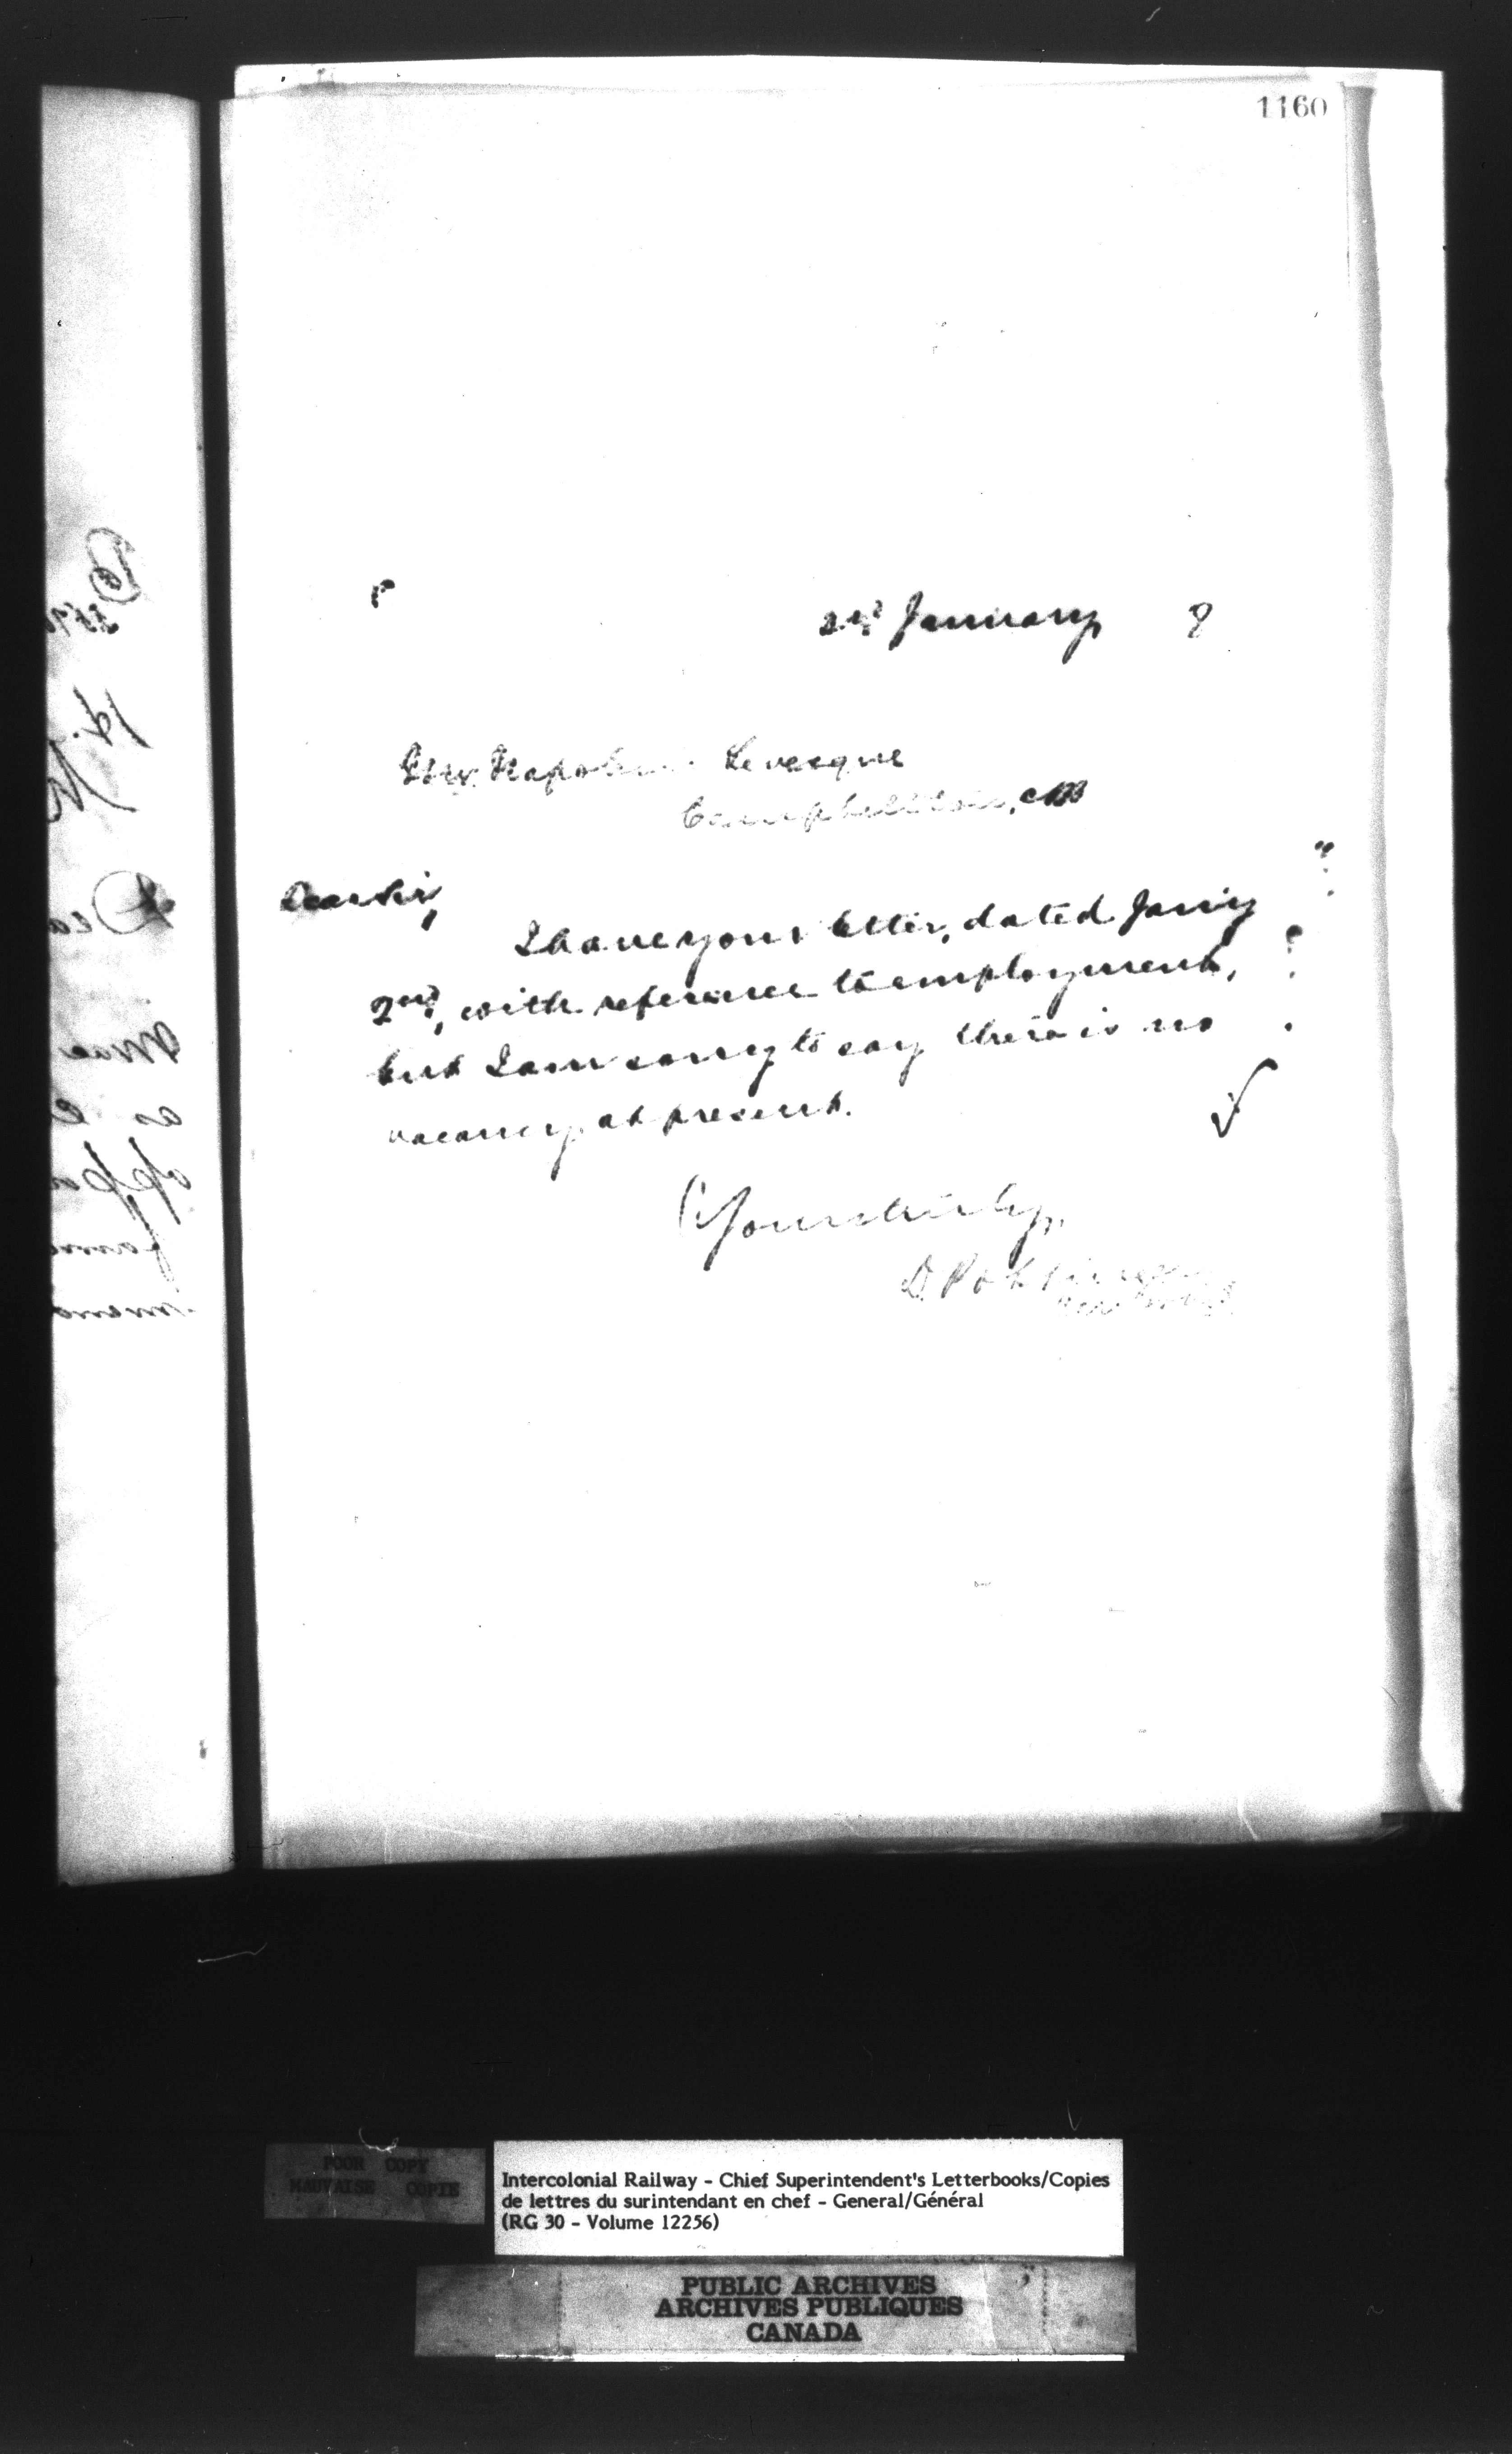 1160
January 8
Mr. Napoleon Levesque
Campbellton, NB
Dear Sir,
I have your letter, dated Jan'y
2nd, with reference to employment,
but I am sorry to say there is no
vacancy at present.
Yours truly,
D. Pottinger
POOR COPY
MAUVAISE COPIE
Intercolonial Railway - Chief Superintendent's Letterbooks/Copies
de lettres du surintendant en chef - General/Général
(RG 30 - Volume 12256)
PUBLIC ARCHIVES
ARCHIVES PUBLIQUES
CANADA